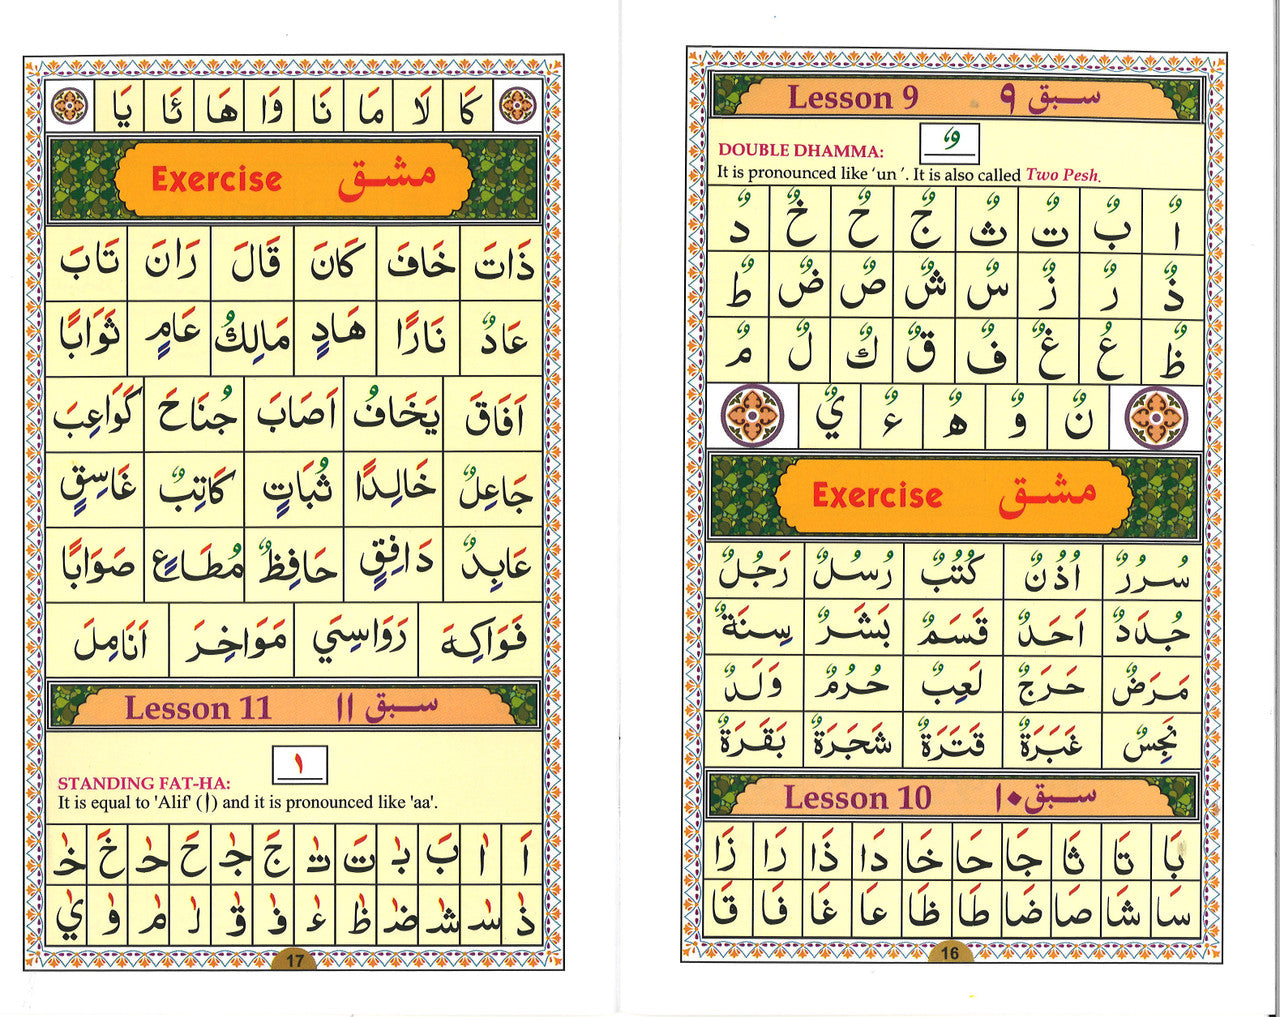 Lesson 9 سبق ٩
DOUBLE DHAMMA:
It is pronounced like ‘un ’. It is also called Two Pesh.
اٌ بٌ تٌ ثٌ جٌ حٌ خٌ دٌ
ذٌ رٌ زٌ سٌ شٌ صٌ ضٌ طٌ
ظٌ عٌ غٌ فٌ قٌ كٌ لٌ مٌ
نٌ وٌ هٌ ءٌ يٌ
Exercise مشق
سُرُرٌ اُذُنٌ كُتُبٌ رُسُلٌ رَجُلٌ
جُدَدٌ اَحَدٌ قَسَمٌ بَشَرٌ سِنَةٌ
مَرَضٌ حَرَجٌ لَعِبٌ حُرُمٌ وَلَدٌ
نَجِسٌ غَبَرَةٌ قَتَرَةٌ شَجَرَةٌ بَقَرَةٌ
Lesson 10 سبق ١٠
بَا تَا ثَا جَا حَا خَا دَا ذَا رَا زَا
سَا شَا صَا ضَا طَا ظَا عَا غَا فَا قَا
16
كَا لَا مَا نَا وَا هَا ءَا يَا
Exercise مشق
ذَاتَ خَافَ كَانَ قَالَ رَانَ تَابَ
عَادٌ نَارًا هَادٍ مَالِكُ عَامٍ ثَوَابًا
اَفَاقَ يَخَافُ اَصَابَ جُنَاحَ كَوَاعِبَ
جَاعِلٌ خَالِدًا ثُبَاتٍ كَاتِبٌ غَاسِقٍ
عَابِدٌ دَافِقٍ حَافِظٌ مُطَاعٍ صَوَابًا
فَوَاكِهَ رَوَاسِيَ مَوَاخِرَ اَنَامِلَ
Lesson 11 سبق ١١
STANDING FAT-HA:
It is equal to 'Alif' (ا) and it is pronounced like 'aa'.
اَ اٰ بَ بٰ تَ تٰ جَ جٰ حَ حٰ خَ خٰ
ذٰ سٰ شٰ ضٰ ظٰ ءٰ فٰ قٰ لٰ مٰ وٰ يٰ
17